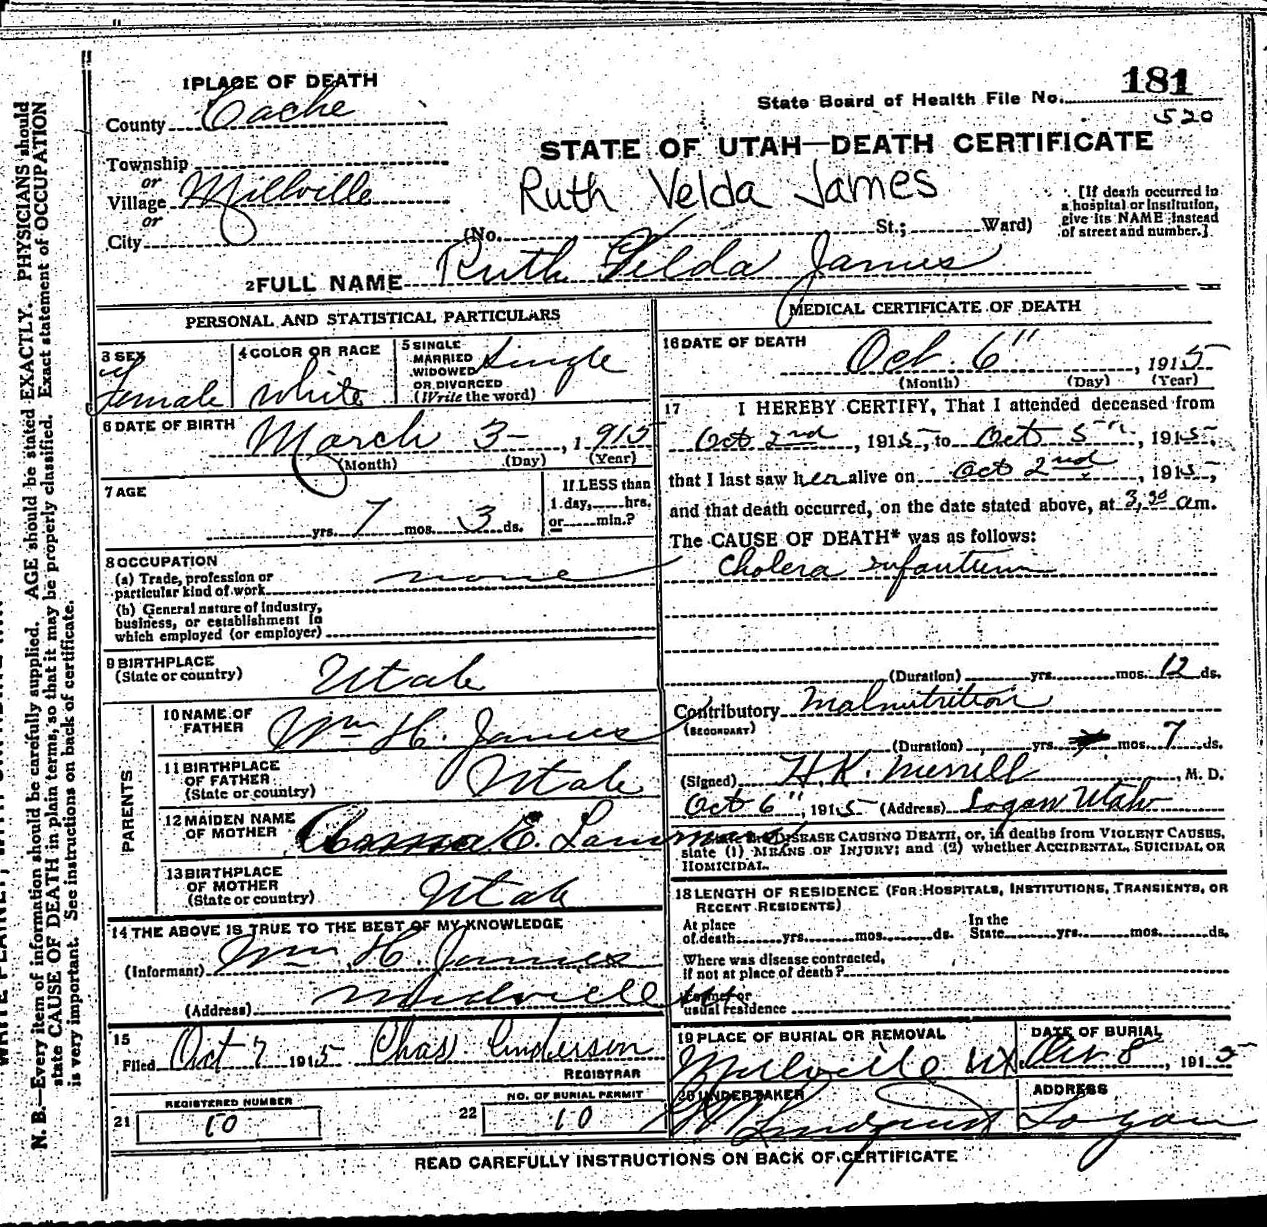 1 PLACE OF DEATH
County Cache
Township
or
Village Millville
or
City
State Board of Health File No. 181
520
STATE OF UTAH—DEATH CERTIFICATE
Ruth Velda James
(No. St.; Ward)
[If death occurred in
a hospital or institution,
give its NAME instead
of street and number.]
2 FULL NAME Ruth Velda James
PERSONAL AND STATISTICAL PARTICULARS
3 SEX
Female
4 COLOR OR RACE
White
5 SINGLE
MARRIED
WIDOWED
OR DIVORCED
(Write the word)
Single
6 DATE OF BIRTH
March 3 - , 1915
(Month) (Day) (Year)
7 AGE
yrs. 7 mos. 3 ds.
If LESS than
1 day, hrs.
or min.?
8 OCCUPATION
(a) Trade, profession or
particular kind of work none
(b) General nature of industry,
business, or establishment in
which employed (or employer)
9 BIRTHPLACE
(State or country) Utah
PARENTS
10 NAME OF
FATHER Wm H. James
11 BIRTHPLACE
OF FATHER
(State or country) Utah
12 MAIDEN NAME
OF MOTHER E.
13 BIRTHPLACE
OF MOTHER
(State or country) Utah
14 THE ABOVE IS TRUE TO THE BEST OF MY KNOWLEDGE
(Informant) Wm H. James
(Address) Millville Ut
15
Filed Oct 7 1915 Chas Anderson
REGISTRAR
21 REGISTERED NUMBER
10
22 NO. OF BURIAL PERMIT
10
MEDICAL CERTIFICATE OF DEATH
16 DATE OF DEATH
Oct. 6" , 1915
(Month) (Day) (Year)
17 I HEREBY CERTIFY, That I attended deceased from
Oct 2nd , 1915, to Oct 5th, 1915,
that I last saw her alive on Oct 2nd , 1915,
and that death occurred, on the date stated above, at 3.30 am.
The CAUSE OF DEATH* was as follows:
Cholera infantum
(Duration) yrs. mos. 12 ds.
Contributory Malnutrition
(SECONDARY)
(Duration) yrs. mos. 7 ds.
(Signed) H.K. Merrill , M. D.
Oct 6", 1915 (Address) Logan Utah
*State the DISEASE CAUSING DEATH, or, in deaths from VIOLENT CAUSES,
state (1) MEANS OF INJURY; and (2) whether ACCIDENTAL, SUICIDAL OR
HOMICIDAL.
18 LENGTH OF RESIDENCE (FOR HOSPITALS, INSTITUTIONS, TRANSIENTS, OR
RECENT RESIDENTS)
At place
of death yrs. mos. ds.
In the
State yrs. mos. ds.
Where was disease contracted,
if not at place of death?
Former or
usual residence
19 PLACE OF BURIAL OR REMOVAL
Millville Ut
DATE OF BURIAL
8 , 1915
20 UNDERTAKER
ADDRESS
Logan
READ CAREFULLY INSTRUCTIONS ON BACK OF CERTIFICATE
N. B.—Every item of information should be carefully supplied. AGE should be stated EXACTLY. PHYSICIANS should
state CAUSE OF DEATH in plain terms, so that it may be properly classified. Exact statement of OCCUPATION
is very important. See instructions on back of certificate.